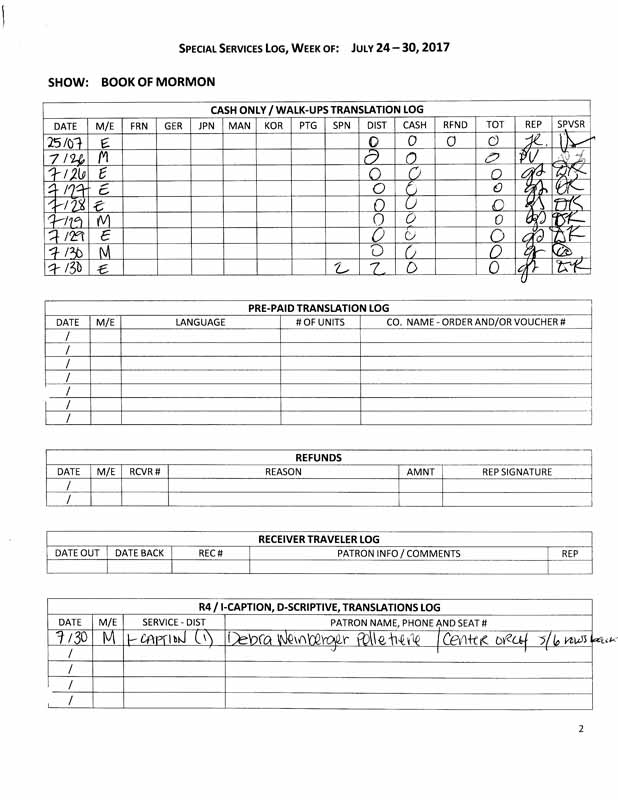 SPECIAL SERVICES LOG, WEEK OF: JULY 24 – 30, 2017
SHOW: BOOK OF MORMON
CASH ONLY / WALK-UPS TRANSLATION LOG
DATE M/E FRN GER JPN MAN KOR PTG SPN DIST CASH RFND TOT REP SPVSR
25/07 E 0 0 0 0
7/26 M 0 0 0 PV
7/26 E 0 0 0
7/27 E 0 0 0
7/28 E 0 0 0
7/29 M 0 0 0
7/29 E 0 0 0
7/30 M 0 0 0
7/30 E 2 2 0 0
PRE-PAID TRANSLATION LOG
DATE M/E LANGUAGE # OF UNITS CO. NAME - ORDER AND/OR VOUCHER #
/
/
/
/
/
/
/
REFUNDS
DATE M/E RCVR # REASON AMNT REP SIGNATURE
/
/
RECEIVER TRAVELER LOG
DATE OUT DATE BACK REC # PATRON INFO / COMMENTS REP
R4 / I-CAPTION, D-SCRIPTIVE, TRANSLATIONS LOG
DATE M/E SERVICE - DIST PATRON NAME, PHONE AND SEAT #
7/30 M I-CAPTION (1) Debra Weinberger Pelletiere / CENTER ORCH 5/6 ROWS
/
/
/
/
2